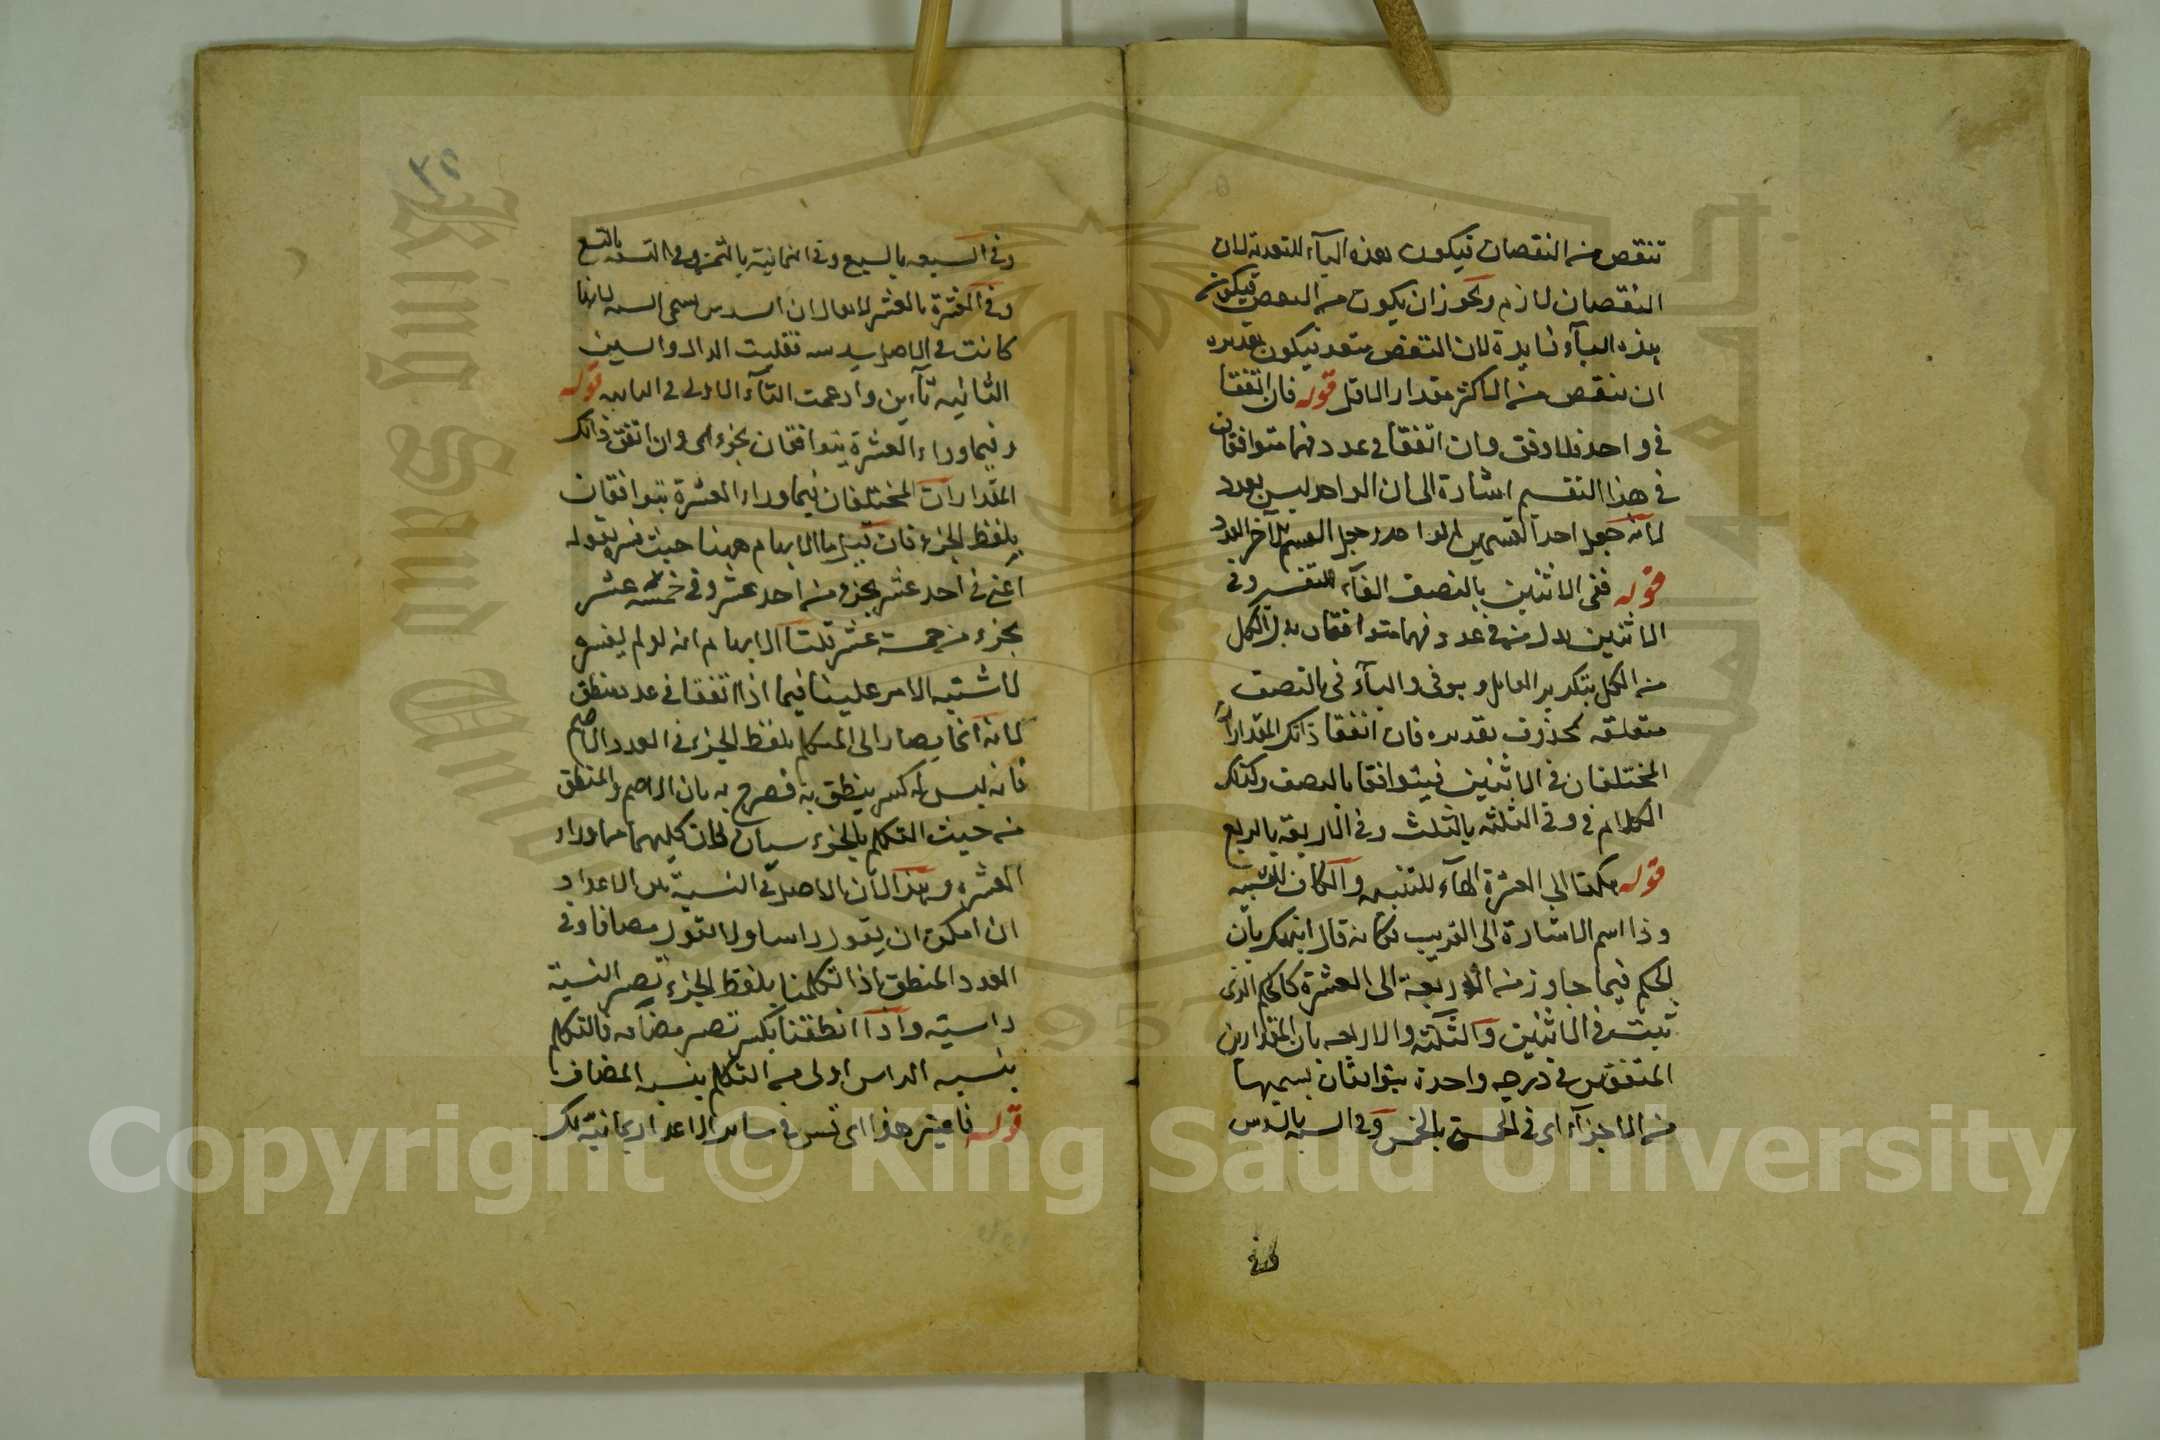 تنقص من النقصان فيكون هذه الباء للتعدية لان
النقصان لازم ويجوز ان يكون من النقص فيكون
هذه الباء زايدة لان النقص متعد فيكون تقديره
ان ينقص من الاكثر مقدار الاقل قوله فان اتفقا
في واحد فلا وفق وان اتفقا في عدد فهما متوافقان
في هذا التقسيم اشارة الى ان الواحد ليس بعدد
لانه جعل احد القسمين الواحد وجعل القسم الآخر العدد
قوله ففي الاثنين بالنصف الفآء للتفسير وفي
الاثنين بدل من في عدد فهما متوافقان بدل الكل
من الكل بتكرير العامل وهو في والبآء في بالنصف
متعلقة بمحذوف تقديره فان اتفقا ذانك المقداران
المختلفان في الاثنين فيتوافقا بالنصف وكذلك
الكلام في وفي الثلثة بالثلث وفي الاربعة بالربع
قوله هكذا الى العشرة الهآء للتنبيه والكاف للتشبيه
وذا اسم الاشارة الى القريب فكانه قال انبهك بان
الحكم فيما جاوز من الاربعة الى العشرة كالحكم الذي
ثبت في الاثنين والثلثة والاربعة بان المقدارين
المتفقين في درجة واحدة يتوافقان بسميها
من الاجزآء اي في الخمسة بالخمس وفي الستة بالسدس
وفي السبعة بالسبع وفي الثمانية بالثمن وفي التسعة بالتسع
وفي العشرة بالعشر لا يقال ان السدس سمي الستة لانها
كانت في الاصل سدسة فقلبت الدال والسين
الثانية تآءين وادغمت التآء الاولى في الثانية قوله
وفيما وراء العشرة يتوافقان بجزء اي وان اتفق ذانك
المقداران المختلفان فيما وراء العشرة يتوافقان
بلفظ الجزء فان قيل ما الابهام ههنا حيث فسره بقوله
اعني في احد عشر بجزء من احد عشر وفي خمسة عشر
بجزء من خمسة عشر قلنا الابهام انه لو لم يفسره
لاشتبه الامر علينا فيما اذا اتفقا في عدد منطق
لانه انما يصار الى المتكلم بلفظ الجزء في العدد الاصم
فانه ليس له كسر ينطق به فصرح به بان الاصم والمنطق
من حيث التكلم بالجزء سيان لان كليهما ما وراء
العشرة وهذا لان الاصل في النسبة بين الاعداد
ان امكن ان يقول راسا ولا تقول مضافا وفي
العدد المنطق اذا تكلمنا بلفظ الجزء تصير النسبة
راسية واذا انطقنا بكسر تصير مضافة فالتكلم
بنسبة الراس اولى من التكلم بنسبة المضاف
قوله فاعتبر هذا اي قس في ساير الاعداد
٣٥
Copyright © King Saud University
King Saud University
1957